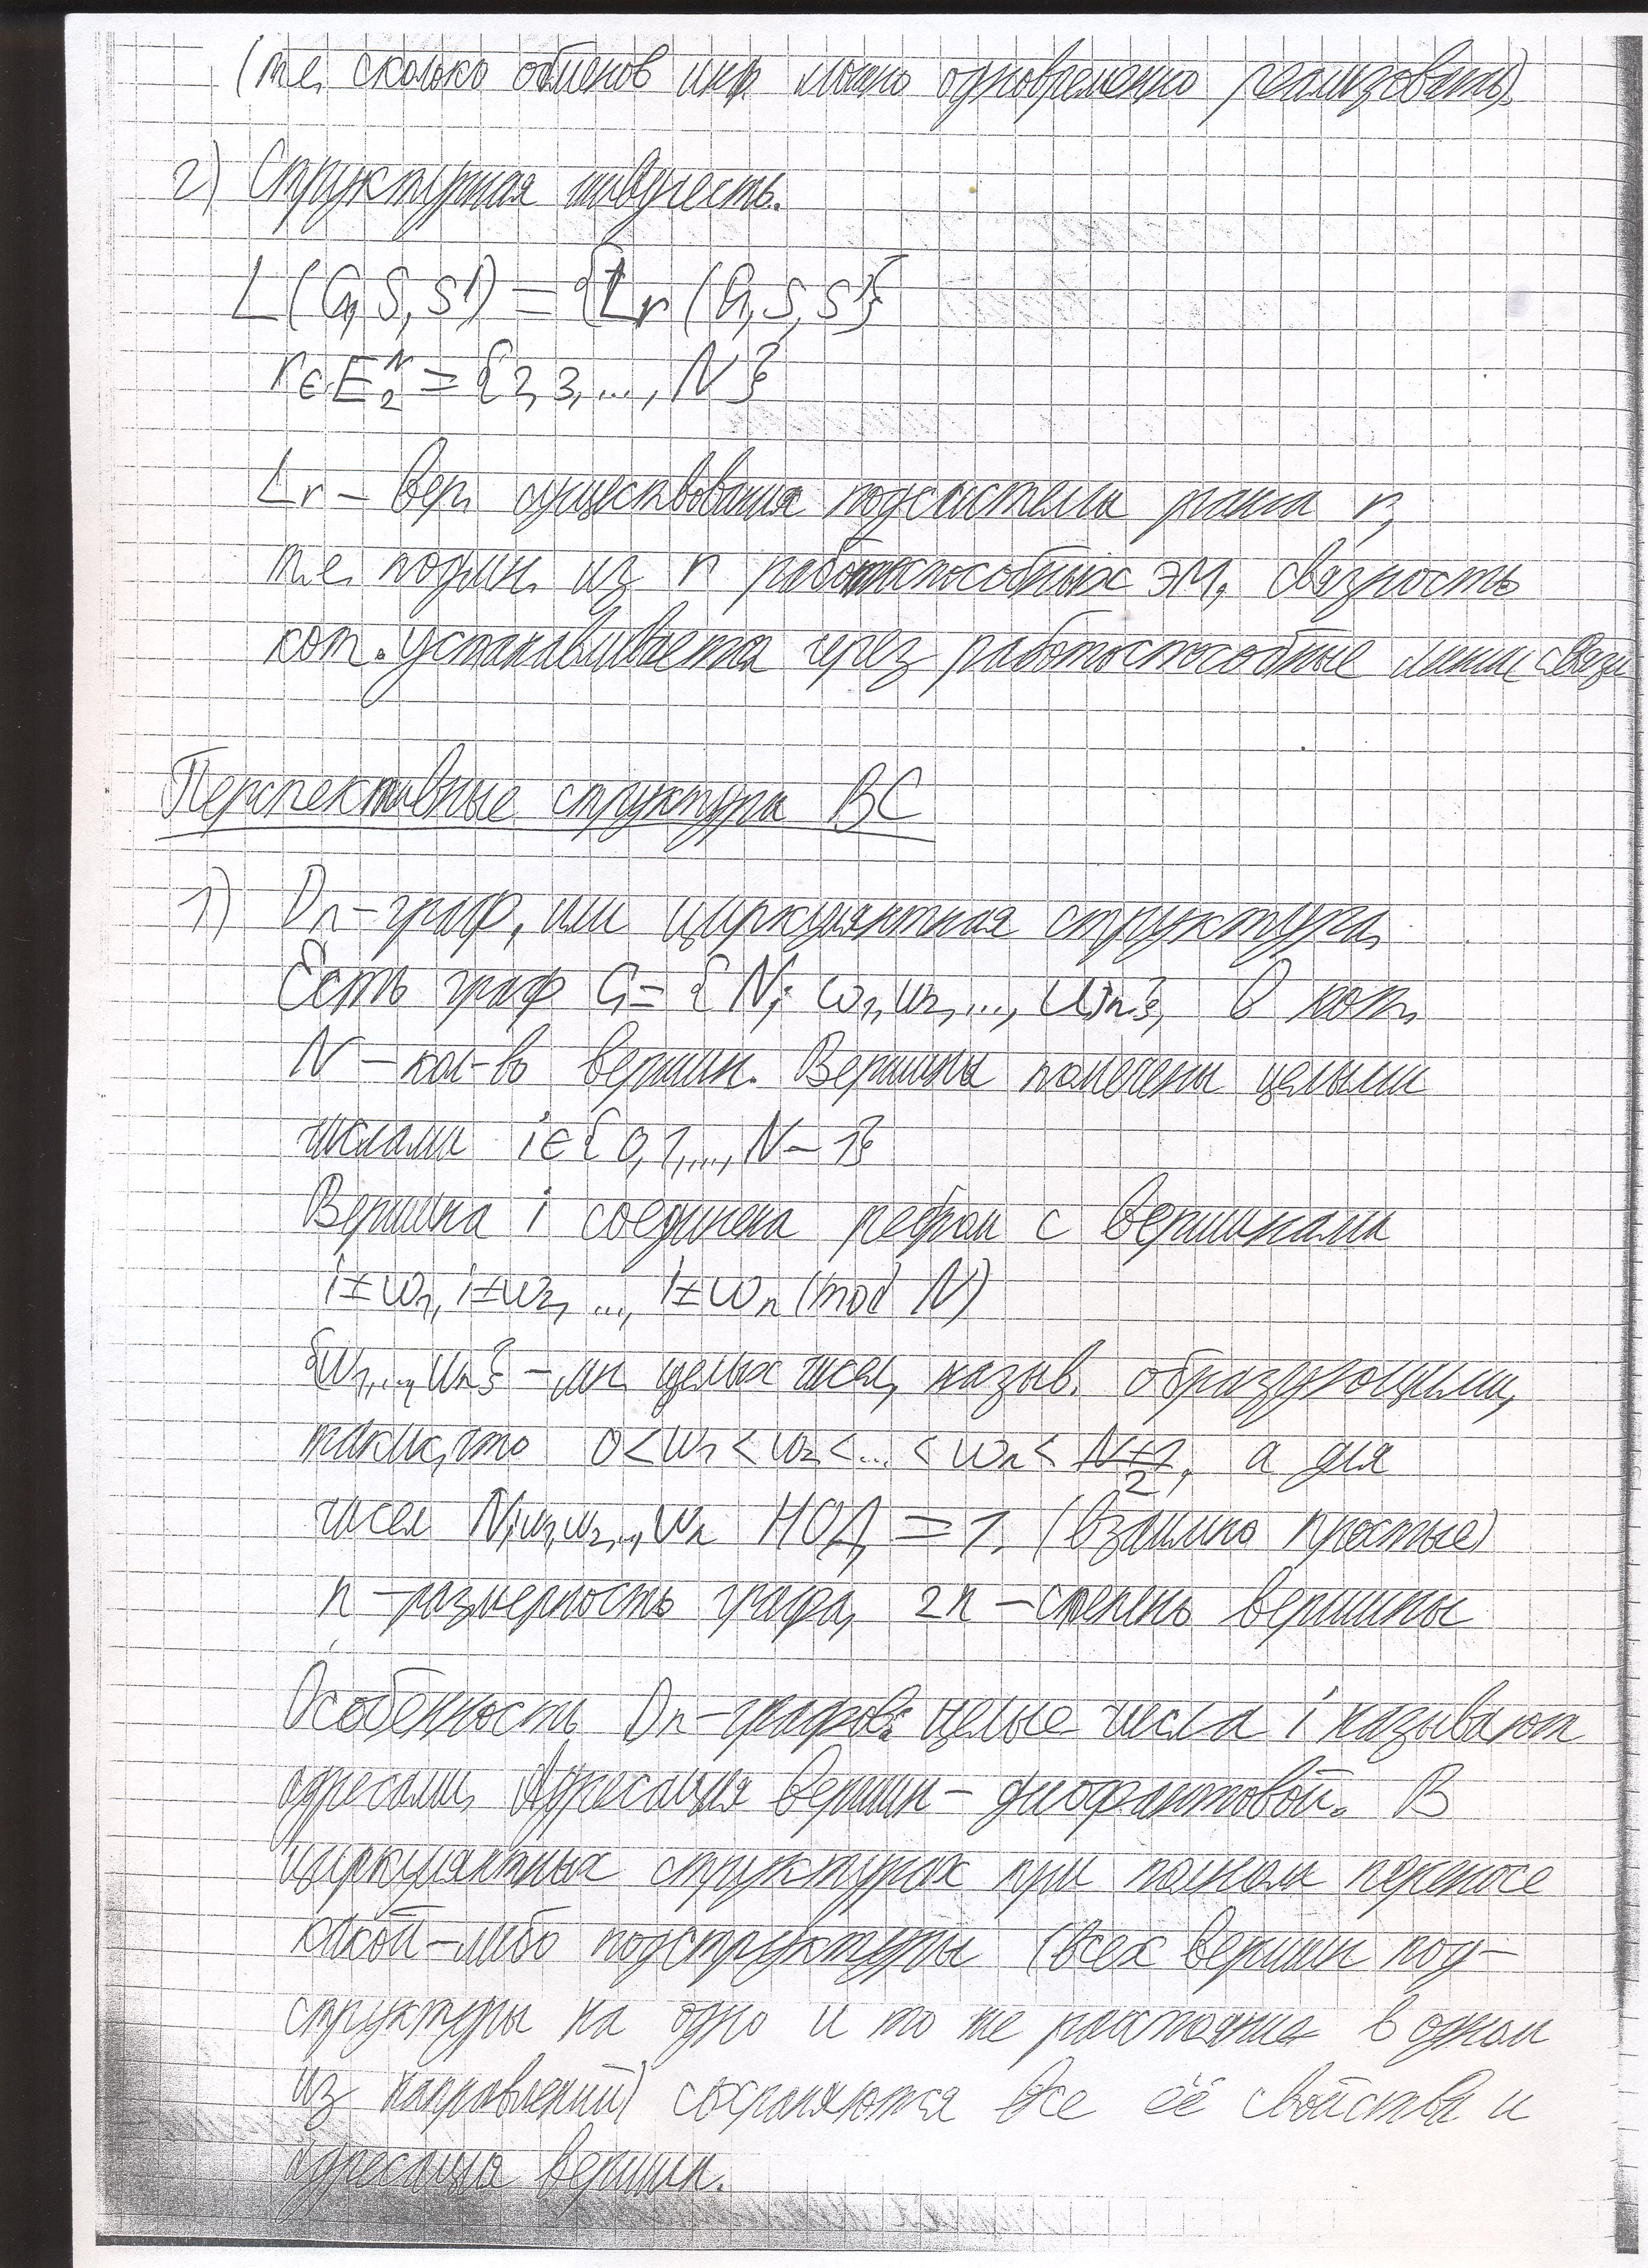 (т.е. сколько обменов инф. можно одновременно реализовать).
2) Структурная живучесть.
L(G, S, S') = {Lr(G, S, S')}
r ∈ E₂ᴺ = {2, 3, ..., N}
Lr – вер. существования подсистемы ранга r,
т.е. подмн. из r работоспособных ЭМ, связность
кот. устанавливается через работоспособные линии связи
Перспективные структуры ВС
1) Dn-граф, или циркулянтная структура.
Есть граф G = {N; ω₁, ω₂, ..., ωn}, в кот.
N – кол-во вершин. Вершины помечены целыми
числами i ∈ {0, 1, ..., N – 1}
Вершина i соединена ребром с вершинами
i±ω₁, i±ω₂, ..., i±ωn (mod N)
{ω₁, ..., ωn} – мн. целых чисел, назыв. образующими,
таких, что 0 < ω₁ < ω₂ < ... < ωn < (N+1)/2, а для
чисел N, ω₁, ω₂, ..., ωn НОД = 1. (взаимно простые)
n – размерность графа, 2n – степень вершины
Особенность Dn-графов: целые числа i называют
адресами. Адресация вершин – диофантовой. В
циркулянтных структурах при полном переносе
какой-либо подструктуры (всех вершин под-
структуры на одно и то же расстояние в одном
из направлений) сохраняются все её свойства и
адресация вершин.